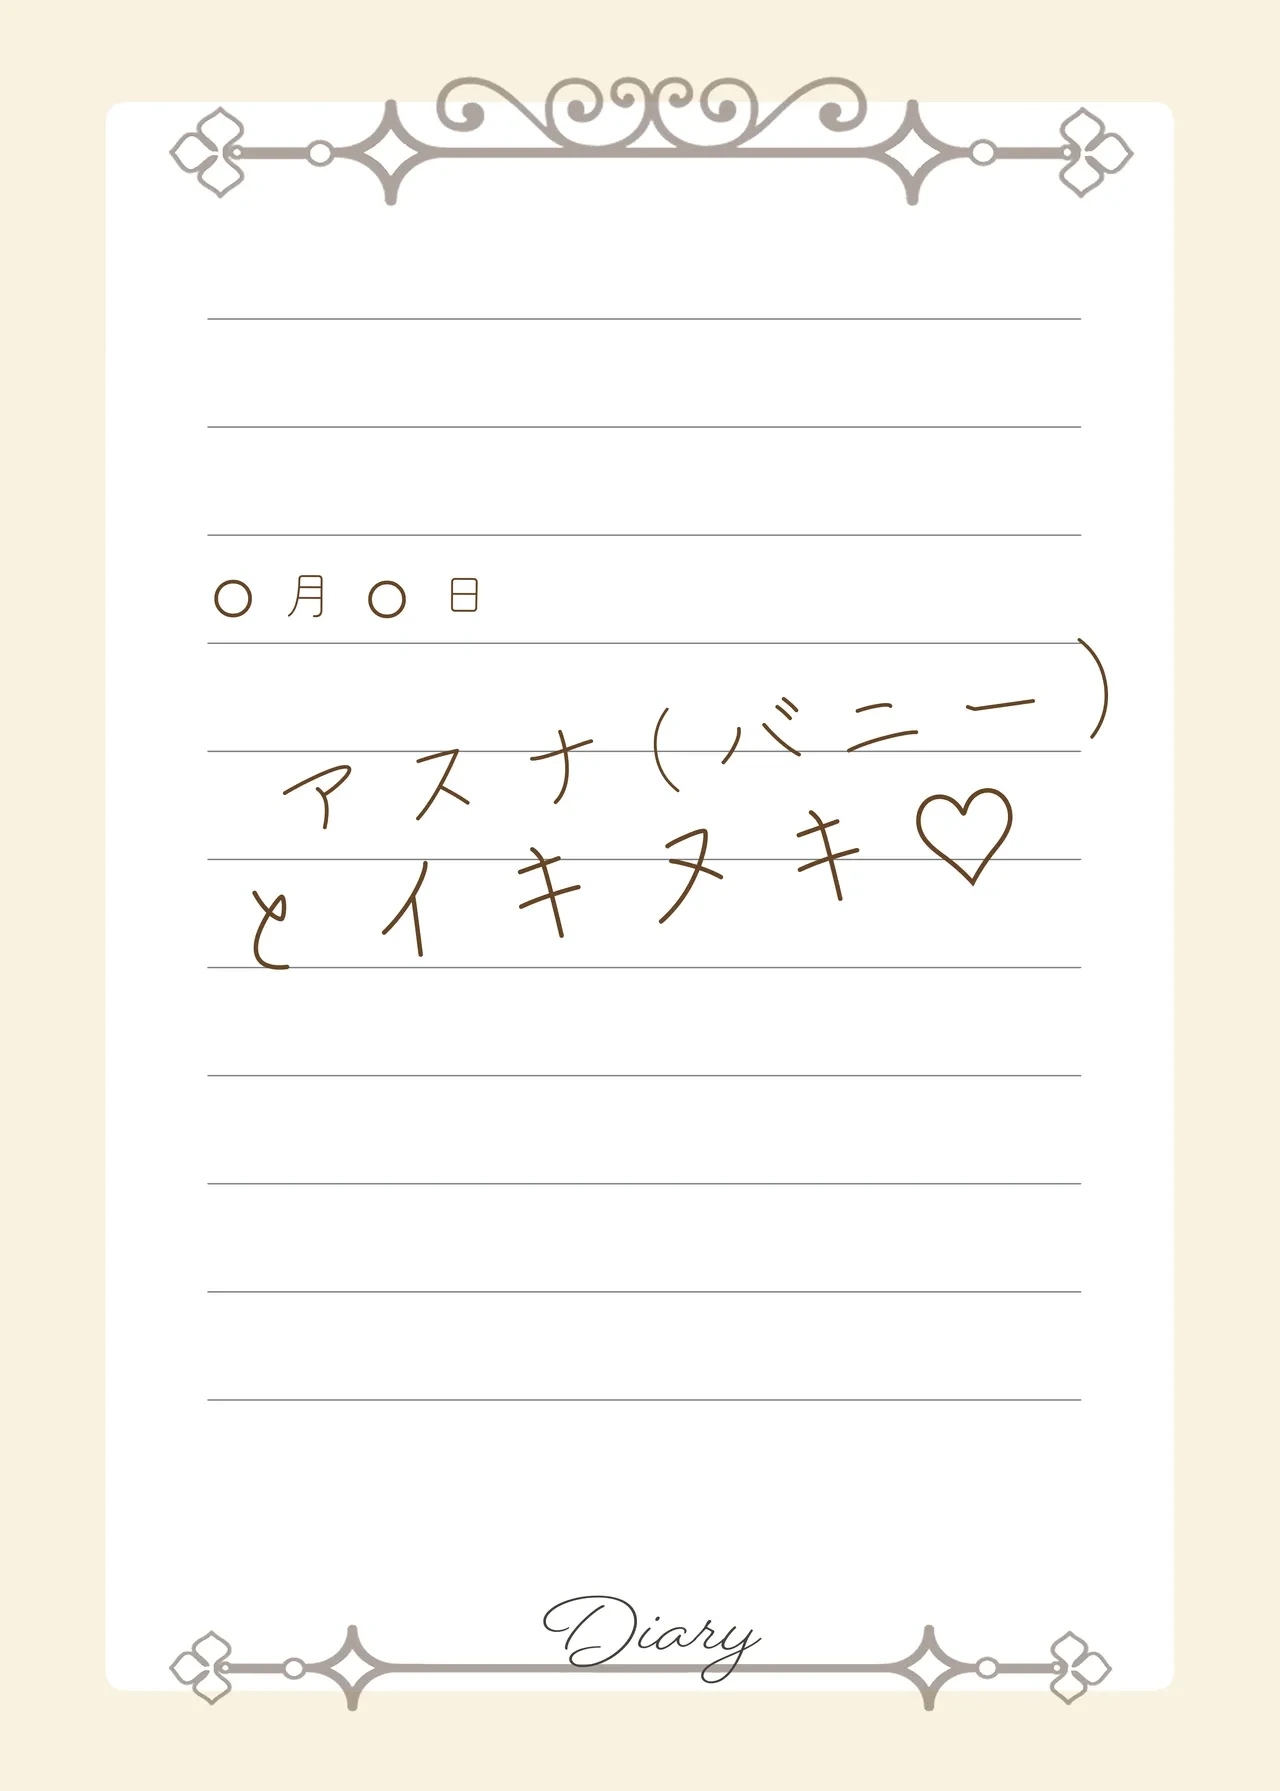 ○月○日
アスナ(バニー)
とイキヌキ♡
Diary